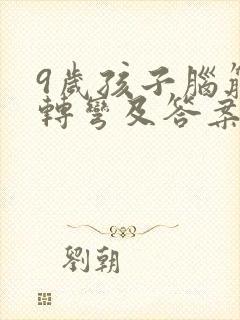 9歲孩子腦筋
轉彎及答案
劉朝